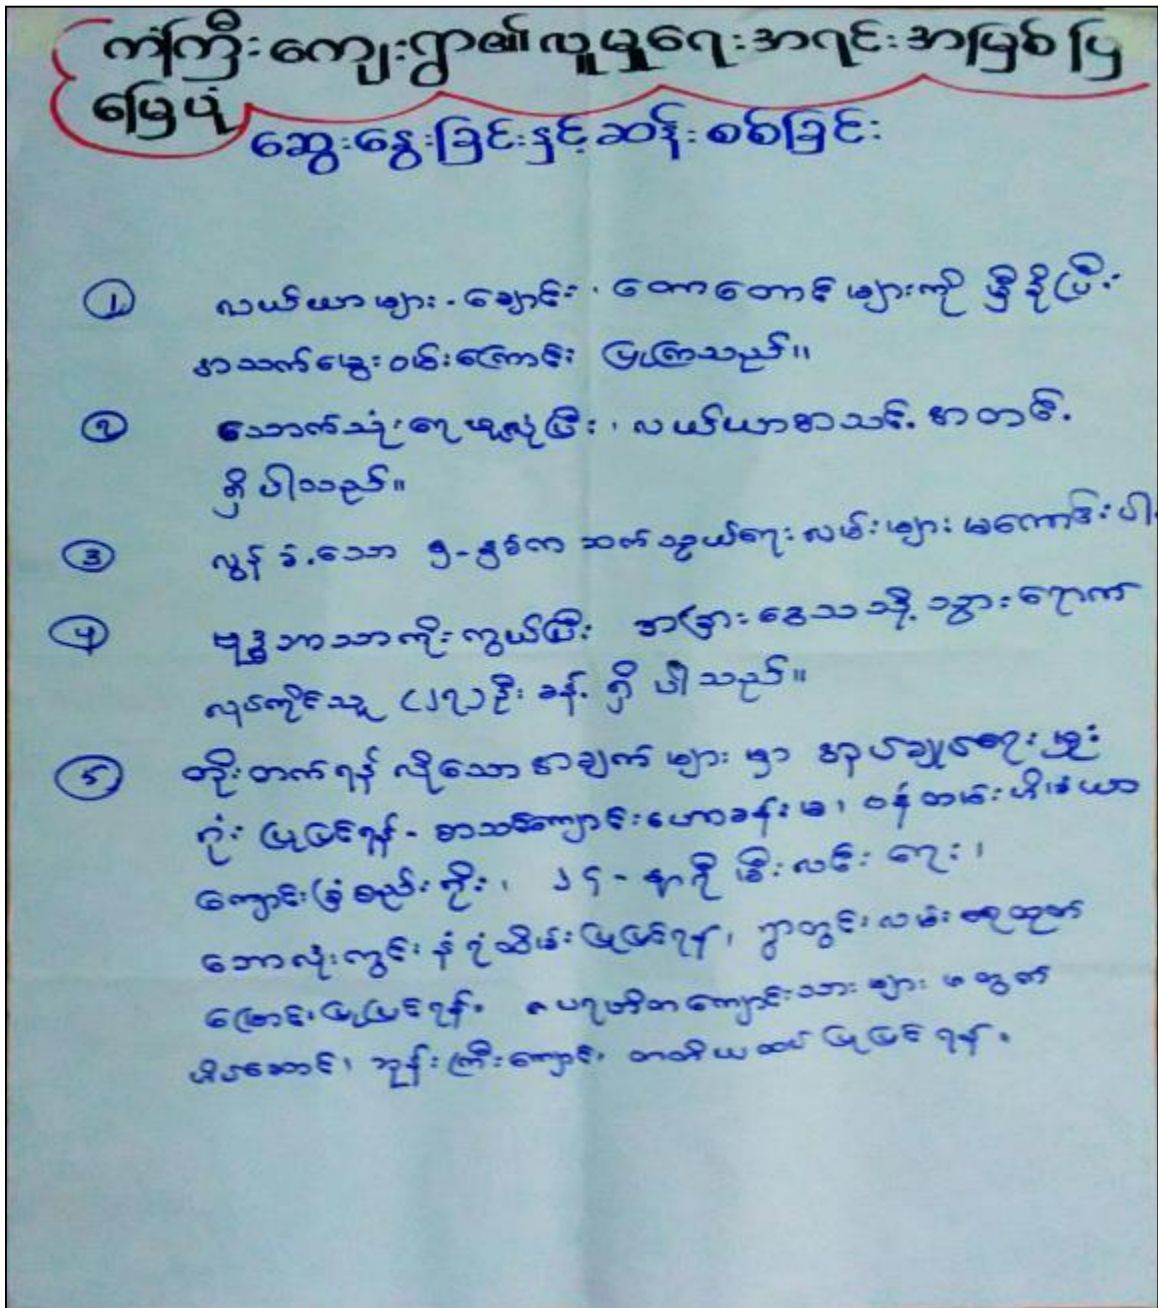 ကံကြီးကျေးရွာ၏လူမှုရေးအရင်းအမြစ်ပြ
မြေပုံ
ဆွေးနွေးခြင်းနှင့်ဆန်းစစ်ခြင်း
① လယ်ယာများ၊ ချောင်း၊ တောတောင်များကို မှီခိုပြီး
အသက်မွေးဝမ်းကြောင်း ပြုကြသည်။
② သောက်သုံးရေဖူလုံပြီး၊ လယ်ယာအသင့်အတင့်
ရှိပါသည်။
③ လွန်ခဲ့သော ၅-နှစ်က ဆက်သွယ်ရေးလမ်းများ မကောင်းပါ
④ ဗုဒ္ဓဘာသာကိုးကွယ်ပြီး အခြားဒေသသို့ သွားရောက်
လုပ်ကိုင်သူ (၂၇)ဦးခန့် ရှိပါသည်။
⑤ တိုးတက်ရန် လိုသောအချက်များမှာ အုပ်ချုပ်ရေးမှူး
ရုံး ပြုပြင်ရန်- စာသင်ကျောင်းဟောခန်းမ၊ ဝန်ထမ်းအိမ်ယာ
ကျောင်းခြံစည်းရိုး၊ ၂၄-နာရီ မီးလင်းရေး၊
ဘောလုံးကွင်းနံရံထိမ်းပြုပြင်ရန်၊ ရွာတွင်းလမ်းရေထုတ်
မြောင်းပြုပြင်ရန်။ ပရဟိတကျောင်းသားများအတွက်
အိပ်ဆောင်၊ ဘုန်းကြီးကျောင်း တတိယထပ်ပြုပြင်ရန်။